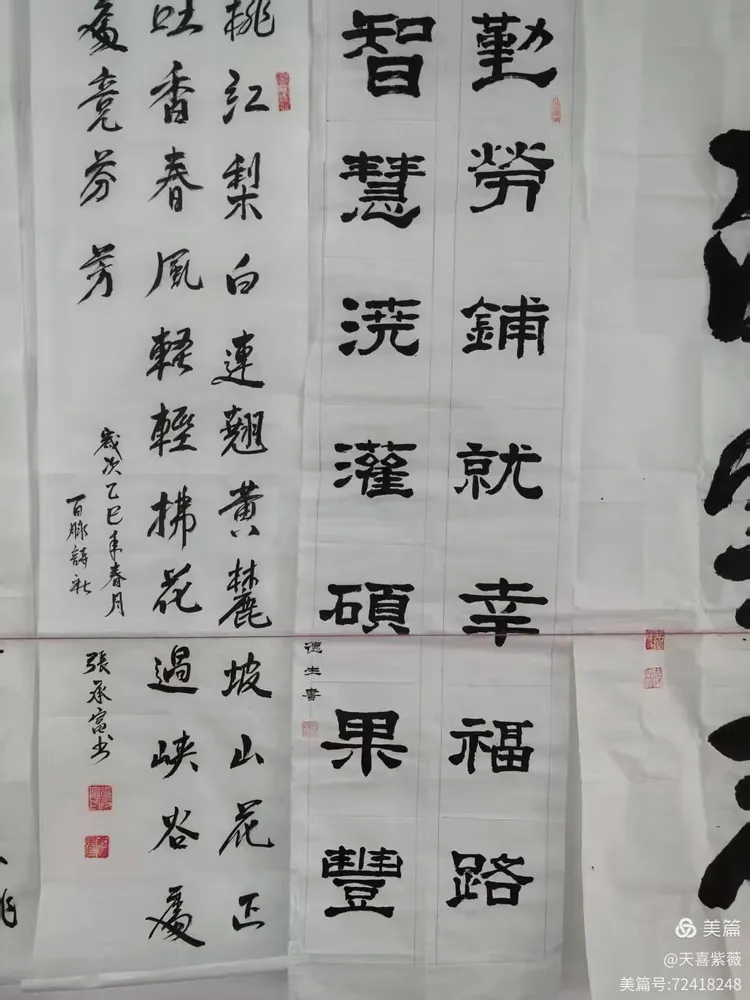 勤勞鋪就幸福路
智慧浇灌碩果豐
德生書
桃红梨白連翹黄麓坡山花正
吐香春風輕輕拂花過峡谷處
處竞芬芳
歲次乙巳年春月
百脉詩社
張承富书
美篇
@天喜紫薇
美篇号:72418248